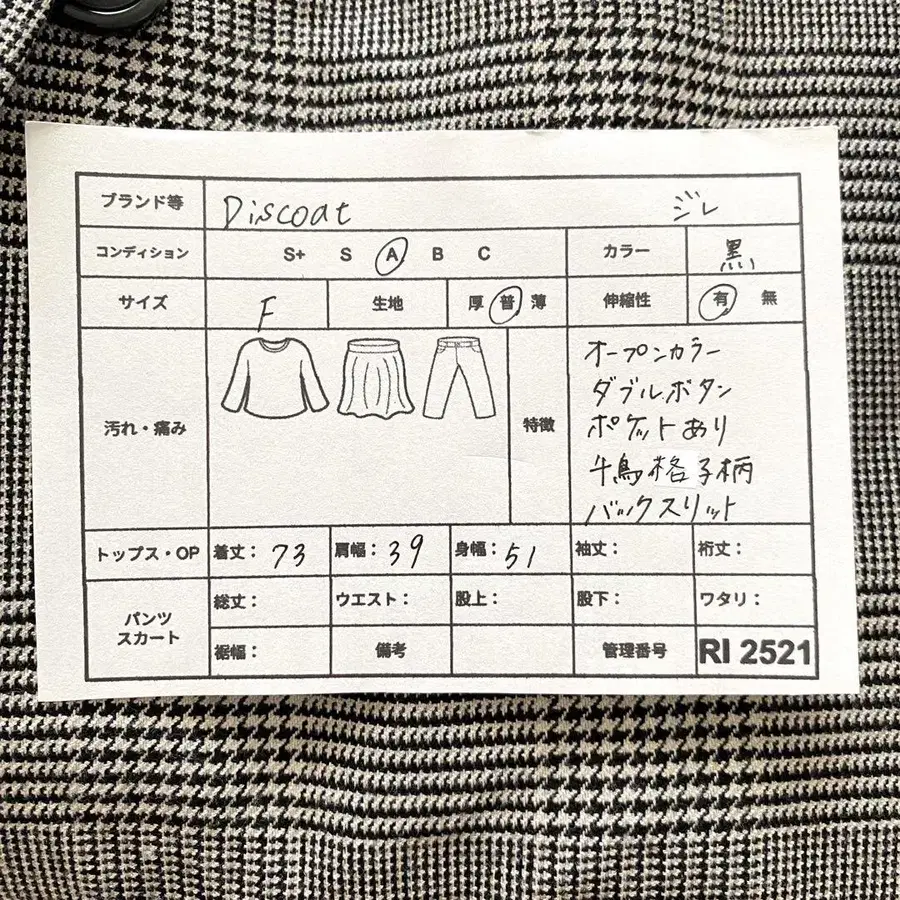 ブランド等 Discoat ジレ
コンディション S+ S A B C カラー 黒
サイズ F 生地 厚 普 薄 伸縮性 有 無
汚れ・痛み 特徴
オープンカラー
ダブルボタン
ポケットあり
千鳥格子柄
バックスリット
トップス・OP 着丈： 73 肩幅： 39 身幅： 51 袖丈： 裄丈：
パンツ
スカート
総丈： ウエスト： 股上： 股下： ワタリ：
裾幅： 備考 管理番号 RI 2521